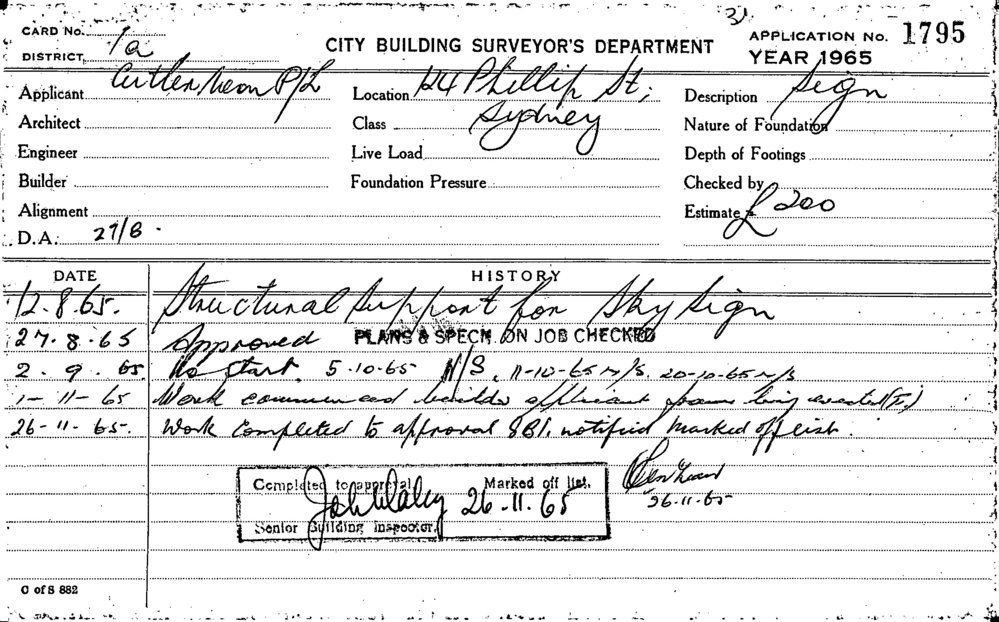 CARD No.
DISTRICT, 1a
CITY BUILDING SURVEYOR'S DEPARTMENT
31.
APPLICATION No. 1795
YEAR 1965
Applicant Cutler Neon P/L
Location 124 Phillip St;
Sydney
Description Sign
Architect
Class
Nature of Foundation
Engineer
Live Load
Depth of Footings
Builder
Foundation Pressure
Checked by
Alignment
Estimate £ 200
D.A: 27/8.
DATE
HISTORY
12.8.65. Structural Support for Sky Sign
27.8.65 Approved PLANS & SPECN. ON JOB CHECKED
2.9.65 No start. 5-10-65 N/S. 11-10-65 N/S. 20-10-65 N/S
1-11-65 Work commenced frame being erected
26-11-65. Work Completed to approval SBI. notified Marked off list.
Completed to approval Marked off list.
26-11-65
Senior Building Inspector.
26.11.65
C of S 882